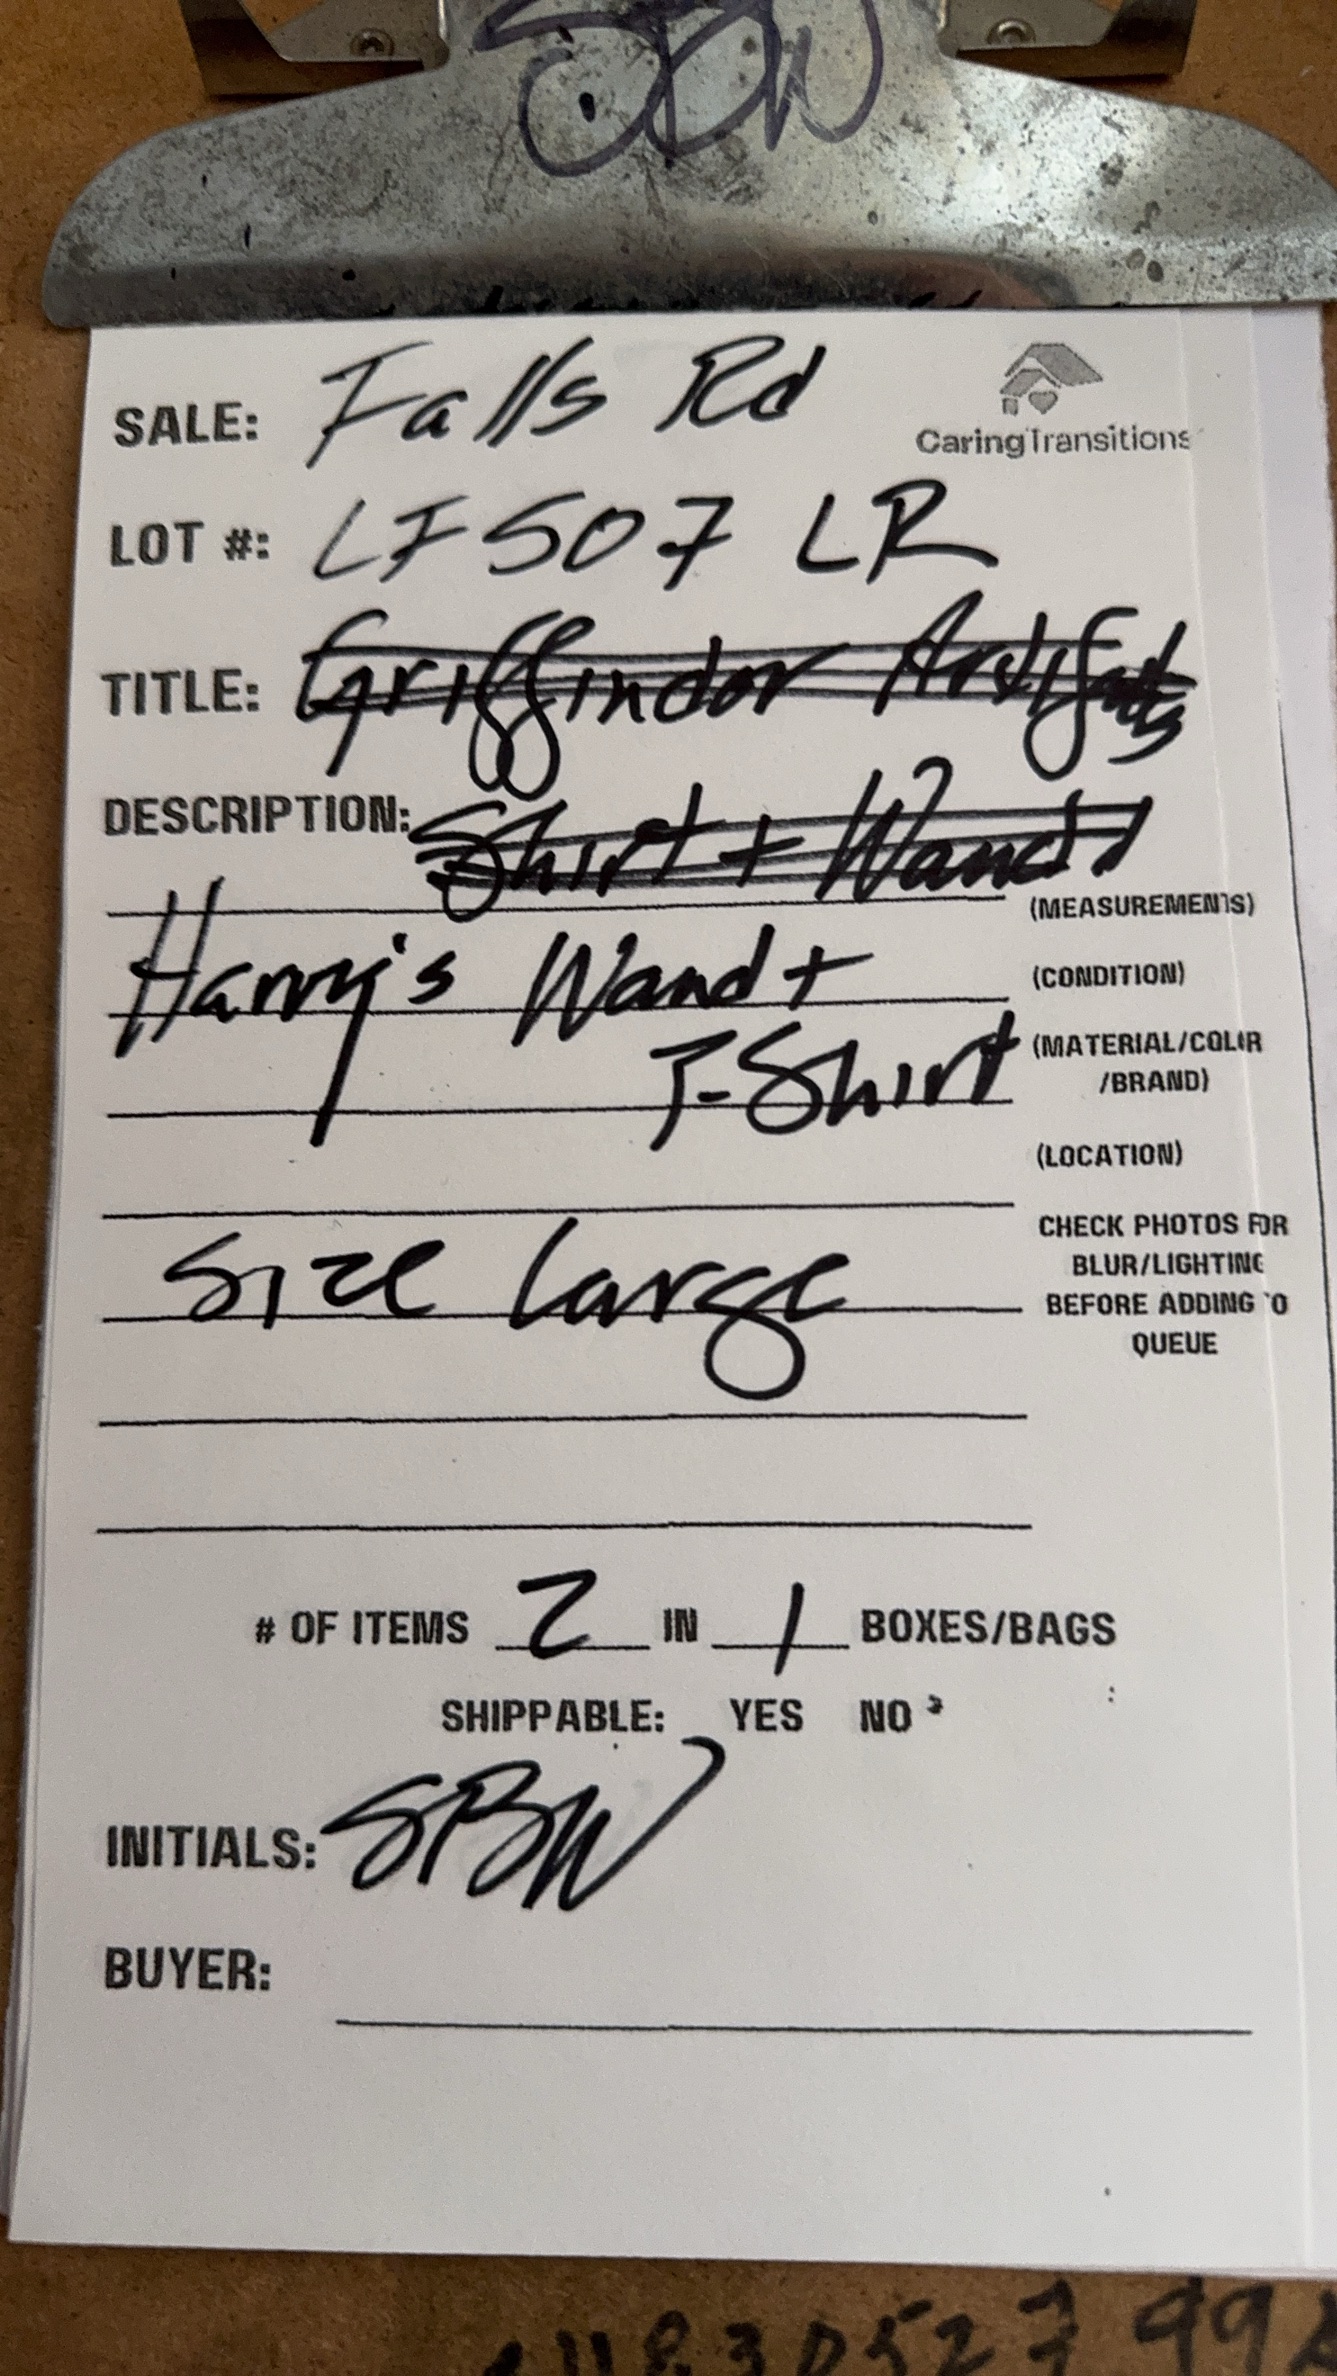 SBW
SALE: Falls Rd
CaringTransitions
LOT #: LF507 LR
TITLE: Griffindor Artifats
DESCRIPTION: Shirt + Wand
(MEASUREMENTS)
Harry's Wand +
(CONDITION)
T-Shirt
(MATERIAL/COLOR
/BRAND)
(LOCATION)
Size Large
CHECK PHOTOS FOR
BLUR/LIGHTING
BEFORE ADDING TO
QUEUE
# OF ITEMS 2 IN 1 BOXES/BAGS
SHIPPABLE: YES NO
INITIALS: SBW
BUYER: